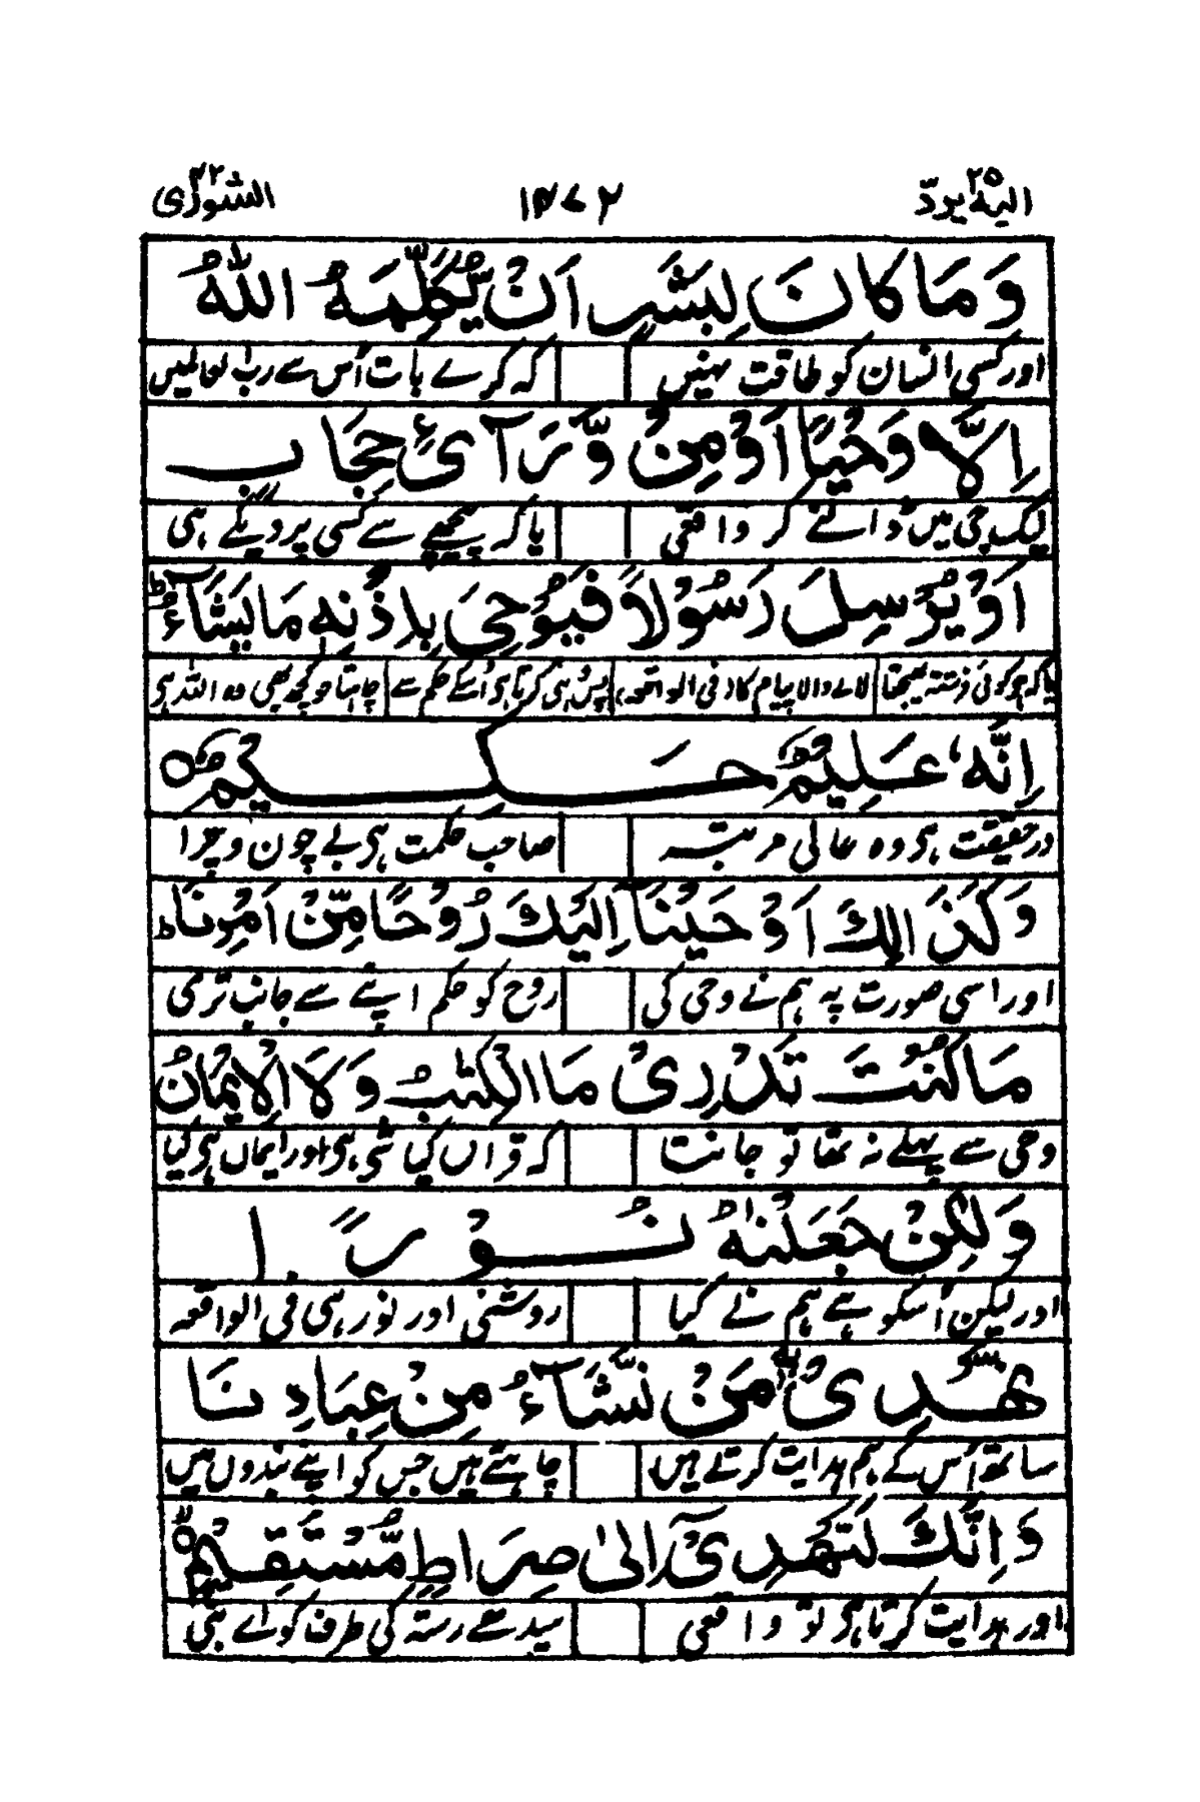 الیه یردّ ٢٥ ١٢٧٢ الشورٰی ٤٢
وَمَا كَانَ لِبَشَرٍ اَنْ يُّكَلِّمَهُ اللّٰهُ
اور کسی انسان کو طاقت نہیں کہ کرے بات اُس سے رب العالمیں
اِلَّا وَحْيًا اَوْ مِنْ وَّرَآئِ حِجَابٍ
لیک جی میں ڈالنے کر واقعی یا کہ پیچھے سے کسی پردیکے ہی
اَوْ يُرْسِلَ رَسُوْلًا فَيُوْحِيَ بِاِذْنِهٖ مَا يَشَآءُ ؕ
یا کہ ہو کوئی فرشتہ بھیجتا لانے والا پیام کا فی الواقعہ پس وہی کرتا ہو اُسکے حکم سے چاہتا جو کچھ بھی وہ اللہ ہی
اِنَّهٗ عَلِيْمٌ حَكِيْمٌ ○
در حقیقت ہی وہ عالی مرتبہ صاحب حکمت ہی بے چون و چرا
وَكَذٰلِكَ اَوْحَيْنَآ اِلَيْكَ رُوْحًا مِّنْ اَمْرِنَا ؕ
اور اسی صورت پہ ہم نے وحی کی روح کو حکم اپنے سے جانب تری
مَا كُنْتَ تَدْرِيْ مَا الْكِتٰبُ وَلَا الْاِيْمَانُ
وحی سے پہلے نہ تھا تو جانتا کہ قرآں کیا شی ہی اور ایماں ہی کیا
وَلٰكِنْ جَعَلْنٰهُ نُوْرًا
اور لیکن اُسکو ہے ہم نے کیا روشنی اور نور ہی فی الواقعہ
نَّهْدِيْ بِهٖ مَنْ نَّشَآءُ مِنْ عِبَادِنَا
ساتھ اُس کے ہم ہدایت کرتے ہیں چاہتے ہیں جس کو اپنے بندوں میں
وَاِنَّكَ لَتَهْدِيْٓ اِلٰى صِرَاطٍ مُّسْتَقِيْمٍ ۙ
اور ہدایت کرتا ہی تو واقعی سیدھے رستہ کی طرف کو اے نبی